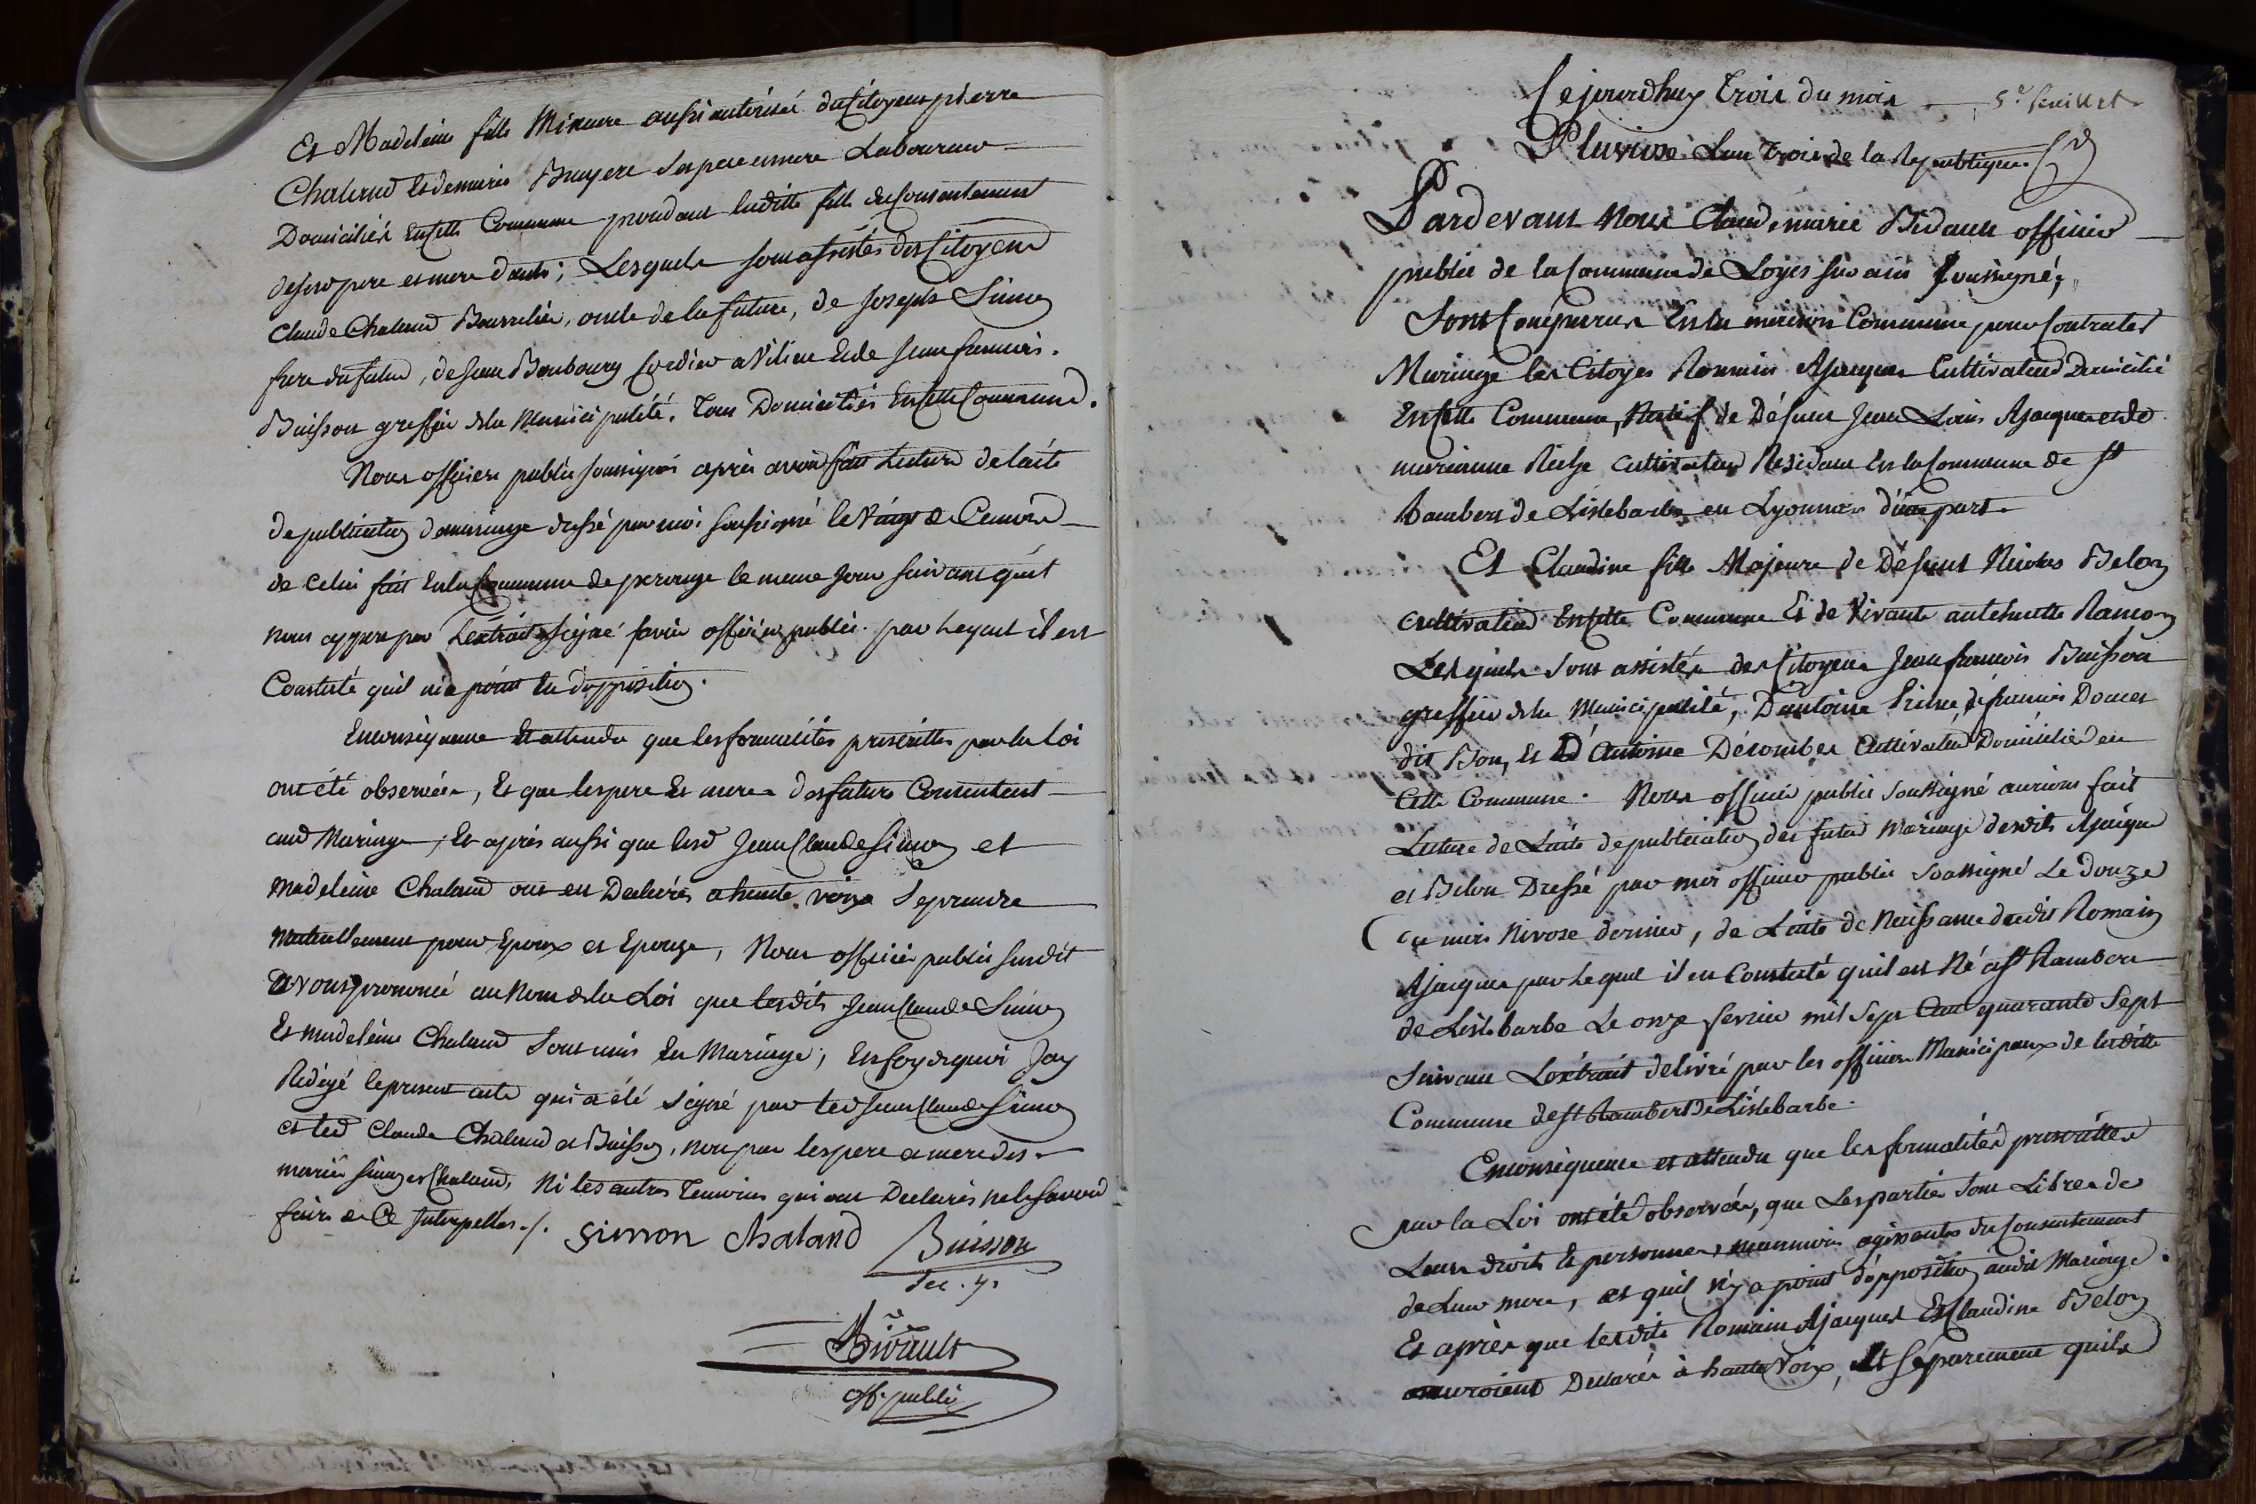 Et Madeleine fille Mineure aussi autorisée du Citoyen pierre
Chaland et de marie Bruyere ses pere et mere Laboureur
Domiciliés en cette Commune procedant laditte fille du Consentement
de ses pere et mere d'autre; Lesquels sont assistés des Citoyens
Claude Chaland Bourrelier, oncle de la future, de Joseph Simon
frere du futur, de Jean Bourbourg Cordier a Vilieu et de Jean francois
Buisson greffier de la Municipalité. Tous Domiciliés en cette Commune.
Nous officier public soussigné après avoir fait Lecture de l'acte
de publication de mariage dressé par moi soussigné le Vingt &
de celui fait en la Commune de perouge le meme jour suivant qu'il
nous appert par L'extrait signé favier officier public par lequel il est
Constaté quil n'i a point eu d'opposition.
En consequence et attendu que les formalités prescrittes par la loi
ont été observées, et que les pere et mere des futurs Consentent
aud Mariage, Et après aussi que lesd Jean Claude Simon et
Madeleine Chaland ont eu Declarés a haute voix Se prendre
Mutuellement pour Epoux et Epouse, Nous officier public susdit
avons prononcé au Nom de la Loi que lesdits Jean Claude Simon
Et madeleine Chaland sont unis en Mariage; En foy de quoi J'ay
Redigé le present acte qui a été signé par led Jean Claude Simon
et led Claude Chaland et Buisson, non par les pere et mere des
mariés Simon et Chaland, Ni les autres Temoins qui ont Declarés ne le Savoir
faire de Ce Interpellés ./.
Simon Chaland Buisson
Sec. g.
Bidault
off. public
5e feuillet
Cejourdhuy Trois du mois
Pluviose Lan Trois de la Republique
Pardevant Nous Claude marie Bidault officier
public de la Commune de Loyes sur ain soussigné,
Sont Comparus En la maison Commune pour Contracter
Mariage les Citoyens Romain Ajacques Cultivateur Domicilié
En cette Commune, Natif de Défunt Jean Louis Ajacques et de
marianne Riche Cultivateur Residant en la Commune de St
Rambert de Lislebarbe en Lyonnais d'une part.
Et Claudine fille Majeure de Défunt Nicolas Belon
Cultivateur En cette Commune Et de Vivante anthelmette Ramon
Lesquels sont assistés des Citoyens Jean francois Buisson
greffier de la Municipalité, D'antoine , de francois Doucet
dit Bon, et D'Antoine Décombes Cultivateur Domiciliés en
Cette Commune. Nous officier public soussigné aurions fait
Lecture de L'acte de publication des futur Mariage desdits Ajacques
et Belon Dressé par moi officier public soussigné Le Douze
du mois Nivose dernier, de L'acte de Naissance dudit Romain
Ajacques par lequel il est Constaté quil est Né a St Rambert
de Lislebarbe Le onze fevrier mil Sept Cent quarante Sept
Suivant L'extrait delivré par les officiers Municipaux de laditte
Commune de St Rambert De Lislebarbe.
En consequence et attendu que les formalités prescrittes
par la Loi ont été observées, que Les parties sont Libres de
Leurs droits et personnes, neanmoins agissantes du Consentement
de Leur mere, et quil n'y a point d'opposition audit Mariage.
Et après que lesdits Romain Ajacques Et Claudine Belon
auroient Declarés à haute Voix, Et Séparement quils